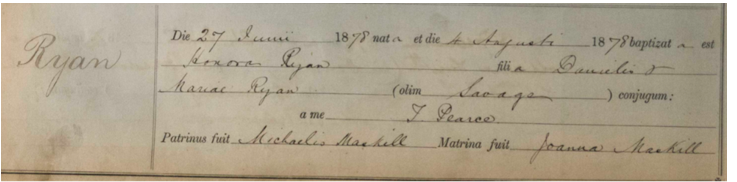 Ryan
Die 27 Junii 1878 nata et die 4 Augusti 1878 baptizata est
Honora Ryan filia Danielis &
Mariae Ryan (olim Savage) conjugum:
a me J Pearce
Patrinus fuit Michaelis Maskill Matrina fuit Joanna Maskill